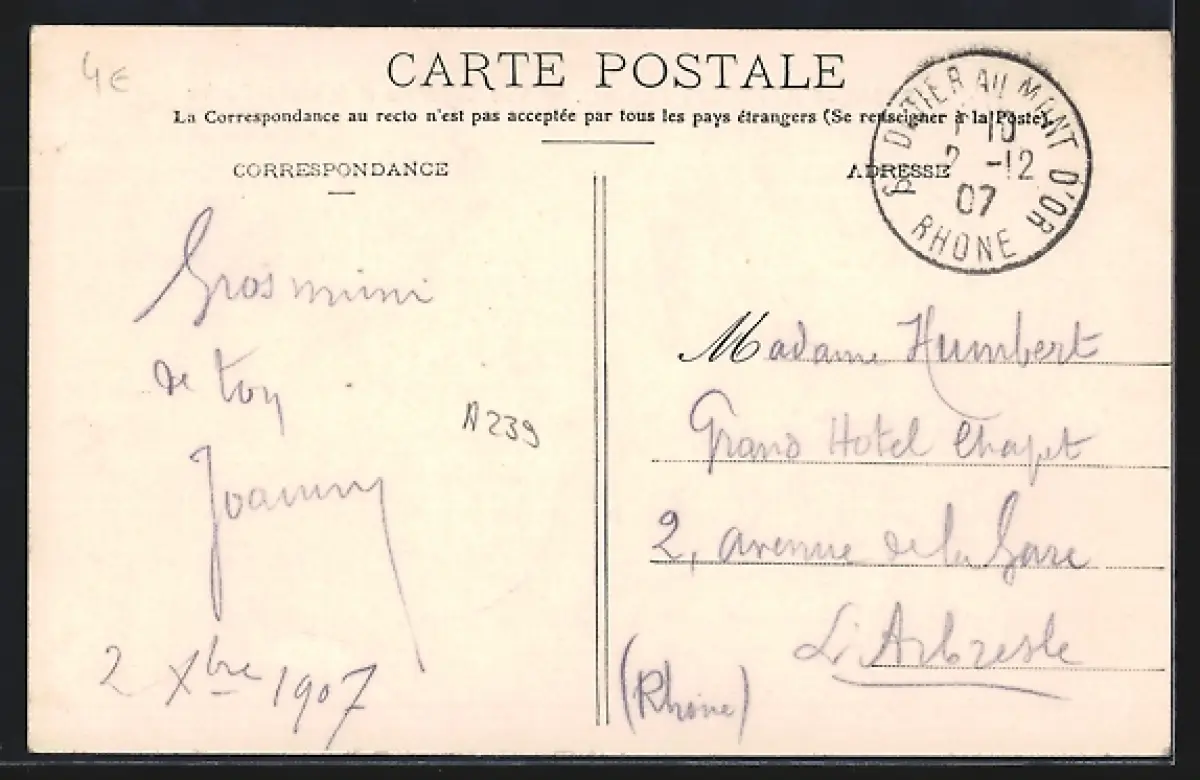 4€
CARTE POSTALE
La Correspondance au recto n'est pas acceptée par tous les pays étrangers (Se renseigner à la Poste).
CORRESPONDANCE
ADRESSE
AU MONT D'OR
2 -12
07
RHONE
Gros mimi
de ton
Joanny
2 Xbre 1907
A239
Madame Humbert
Grand Hotel Chapet
2, avenue de la Gare
L'Arbresle
(Rhône)